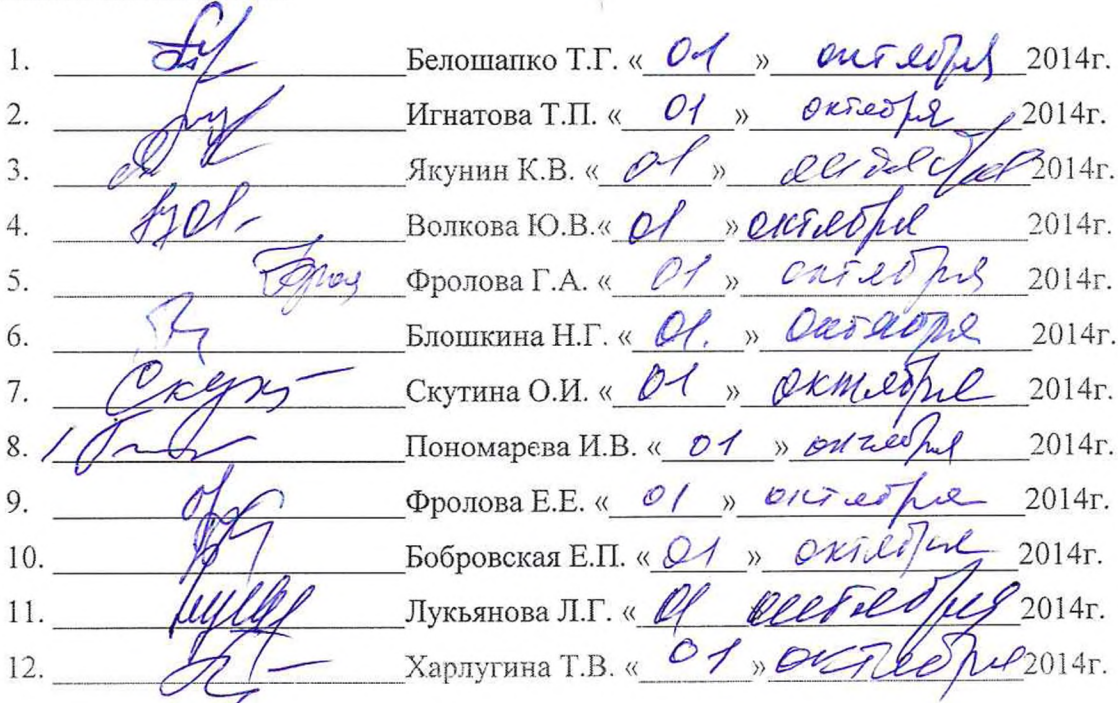 1. Белошапко Т.Г. « 01 » октября 2014г.
2. Игнатова Т.П. « 01 » октября 2014г.
3. Якунин К.В. « 01 » октября 2014г.
4. Волкова Ю.В.« 01 » октября 2014г.
5. Фролова Г.А. « 01 » октября 2014г.
6. Блошкина Н.Г. « 01. » октября 2014г.
7. Скутина О.И. « 01 » октября 2014г.
8. Пономарева И.В. « 01 » октября 2014г.
9. Фролова Е.Е. « 01 » октября 2014г.
10. Бобровская Е.П. « 01 » октября 2014г.
11. Лукьянова Л.Г. « 01 октября 2014г.
12. Харлугина Т.В. « 01 » октября 2014г.